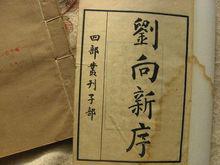 劉向新序
四部叢刊子部